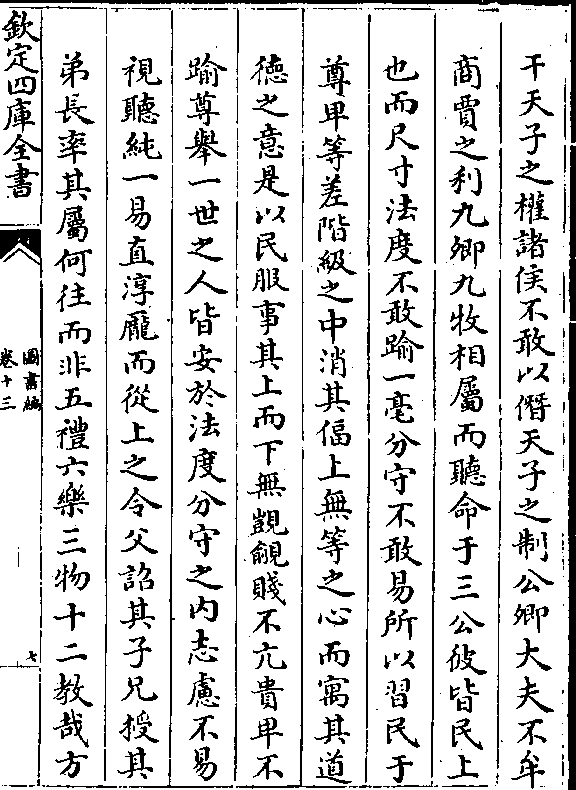 干天子之權諸侯不敢以僭天子之制公卿大夫不牟
商賈之利九卿九牧相屬而聽命于三公彼皆民上
也而尺寸法度不敢踰一毫分守不敢易所以習民于
尊卑等差階級之中消其偪上無等之心而寓其道
德之意是以民服事其上而下無覬覦賤不亢貴卑不
踰尊舉一世之人皆安於法度分守之内志慮不易
視聽純一易直淳厖而從上之令父詔其子兄授其
弟長率其屬何往而非五禮六樂三物十二教哉方
欽定四庫全書
圖書編
卷十三
七